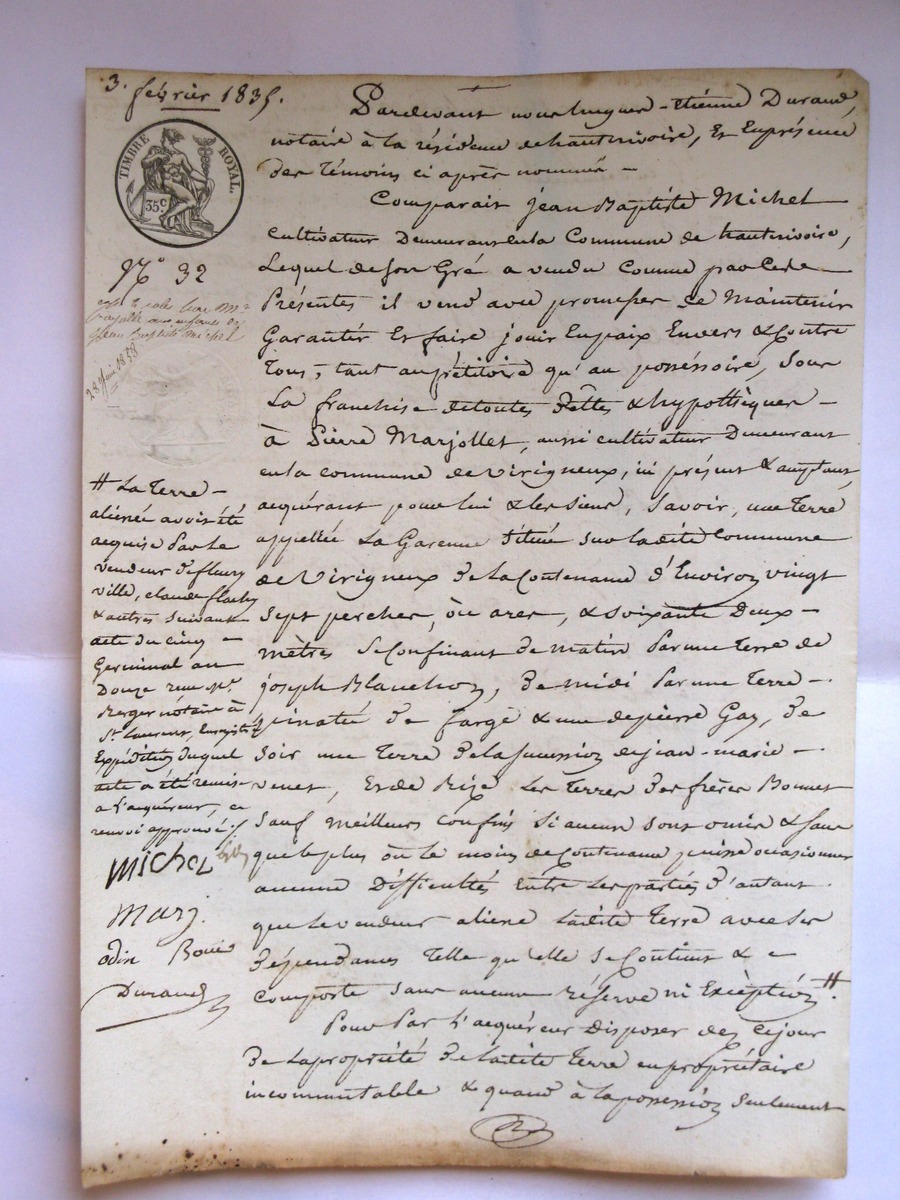 3. février 1835.
TIMBRE ROYAL.
35c
N° 32
jean Baptiste michel
28 juin 1838
Pardevant nous hugues-étienne Durand,
notaire à la résidence de hauterivoire, Et En présence
des témoins ci après nommés -
Comparait jean Baptiste Michel
cultivateur Demeurant en la Commune de hauterivoire,
Lequel de son Gré a vendu Comme par Ces
Présentes il vend avec promesse de Maintenir
Garantir Et faire jouir En paix Envers & Contre
Tous, tant au pétitoire qu'au posséssoire, sous
La franchise de toutes dettes & hypothèques -
à Pierre Marjollet, aussi cultivateur Demeurant
en la commune de Virigneux, ici présent & acceptant,
acquérant pour lui & les siens, savoir, une Terre
appellée La Garenne située sur la dite Commune
de Virigneux De la Contenance d'Environ vingt
sept perches, ou ares, & soixante Deux -
mètres se Confinant de matin Par une terre de
joseph Blanchon, de midi Par une Terre -
De fargé & une de pierre Gay, de
soir une Terre de la succession de jean-marie -
venet, Et de Bize Les terres Des frères Bonnet
sauf Meilleurs Confins si aucuns sont omis & sans
que le plus ou le moins de Contenance puisse occasionner
aucune Difficultés Entre Les parties D'autant
que le vendeur aliene Ladite Terre avec ses
Dépendances Telle qu'elle se Contient & se
Comporte sans aucune réserve ni Excéption #.
Pour Par L'acquéreur disposer dez Ce jour
De la propriété De la dite Terre en propriétaire
incommutable & quand à la possession seulement
# La Terre -
aliénée avoit été
acquise Par Le
vendeur De fleury
ville, claude flachy
& autres suivant
acte du cinq -
Germinal an
Douze reçu Me
Berger notaire à
St Laurent, Enregistré
Expédition duquel
acte a été remise
a L'acquéreur, ce
renvoi approuvé ./.
michel
marj.
odin Bouié
Durand